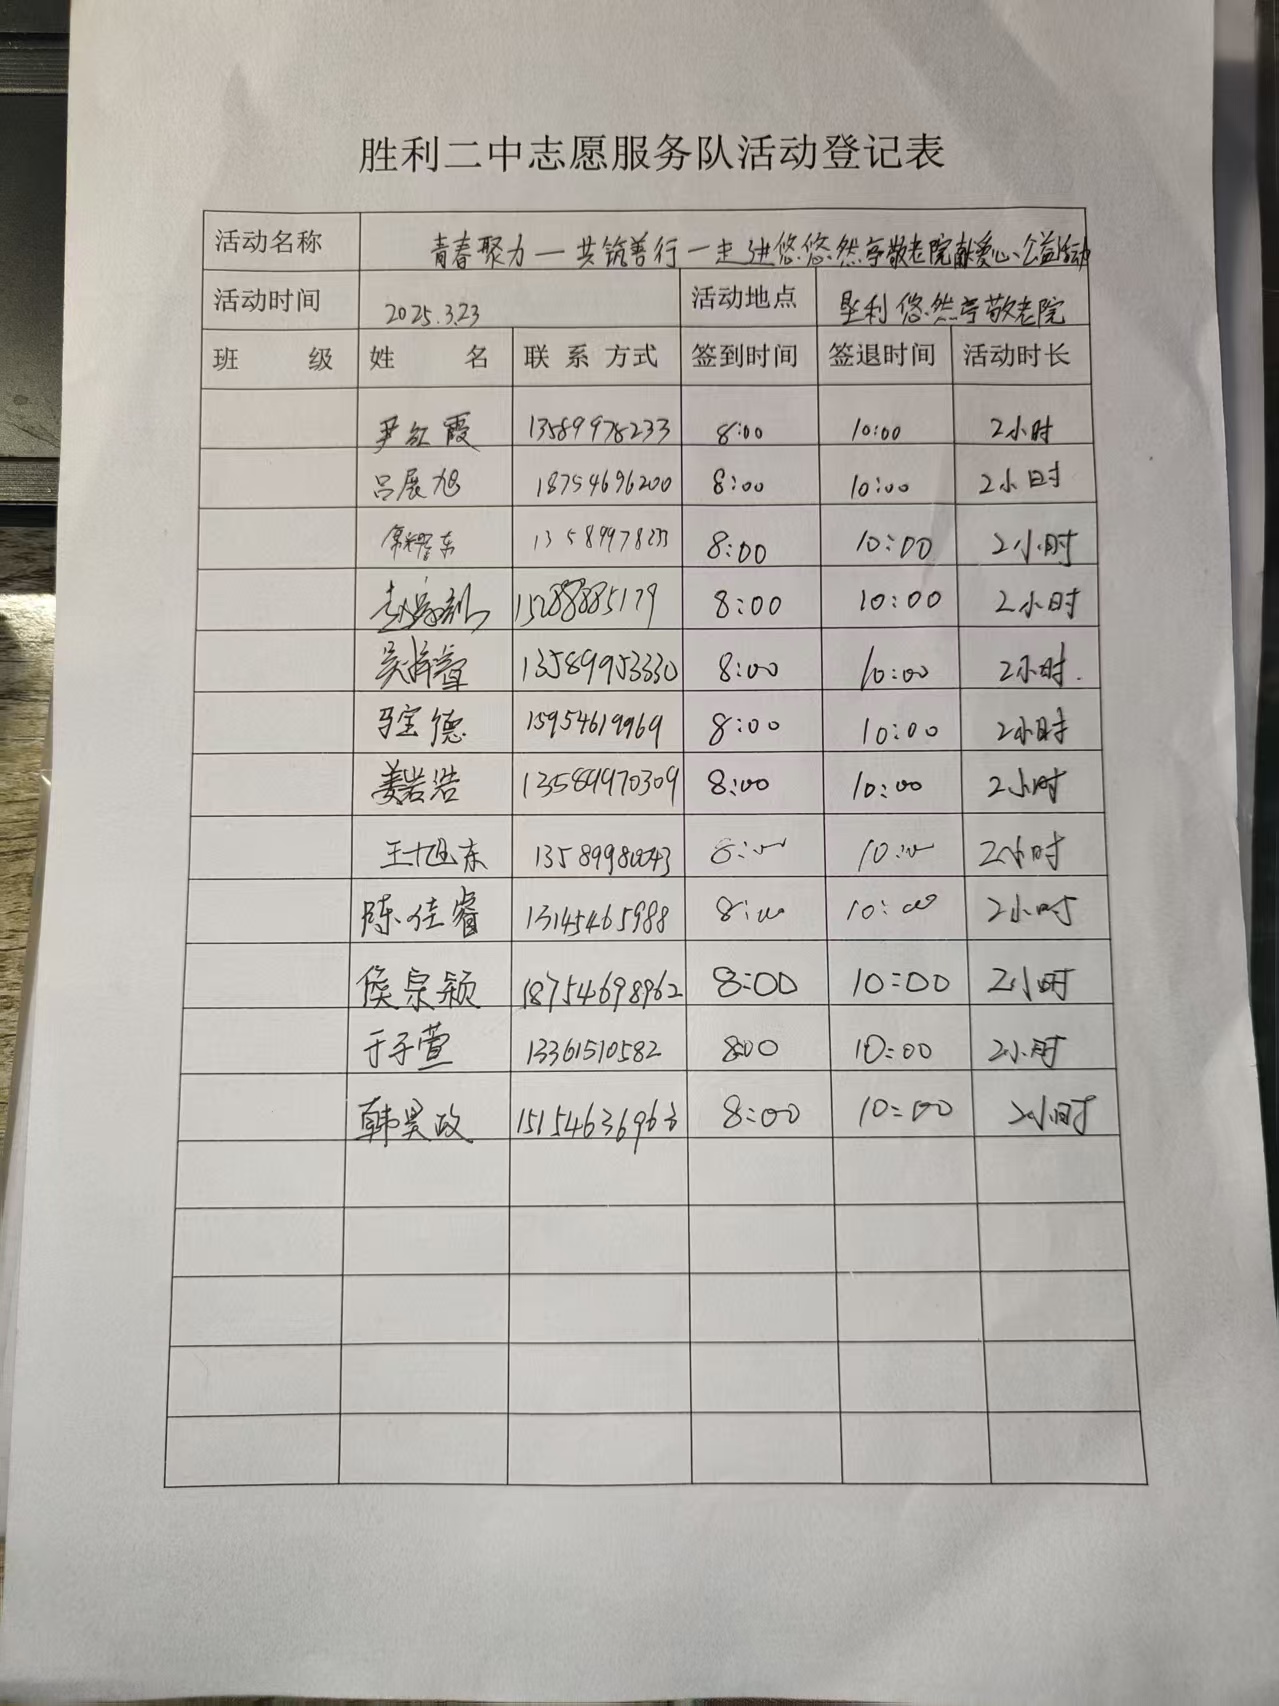 胜利二中志愿服务队活动登记表
活动名称 青春聚力一共筑善行一走进悠悠然亭敬老院献爱心公益活动
活动时间 2025.3.23 活动地点 垦利悠然亭敬老院
班 级 姓 名 联系方式 签到时间 签退时间 活动时长
尹红霞 13589978233 8:00 10:00 2小时
吕展旭 18754696200 8:00 10:00 2小时
13589978233 8:00 10:00 2小时
15288885179 8:00 10:00 2小时
13589953330 8:00 10:00 2小时.
马宝德 15954619969 8:00 10:00 2小时
姜岩浩 13589970309 8:00 10:00 2小时
王旭东 8:00 10:00 2小时
陈佳睿 13145465988 8:00 10:00 2小时
侯宗颖 18754698962 8:00 10:00 2小时
于子萱 13361510582 8:00 10:00 2小时
韩昊政 8:00 10:00 2小时